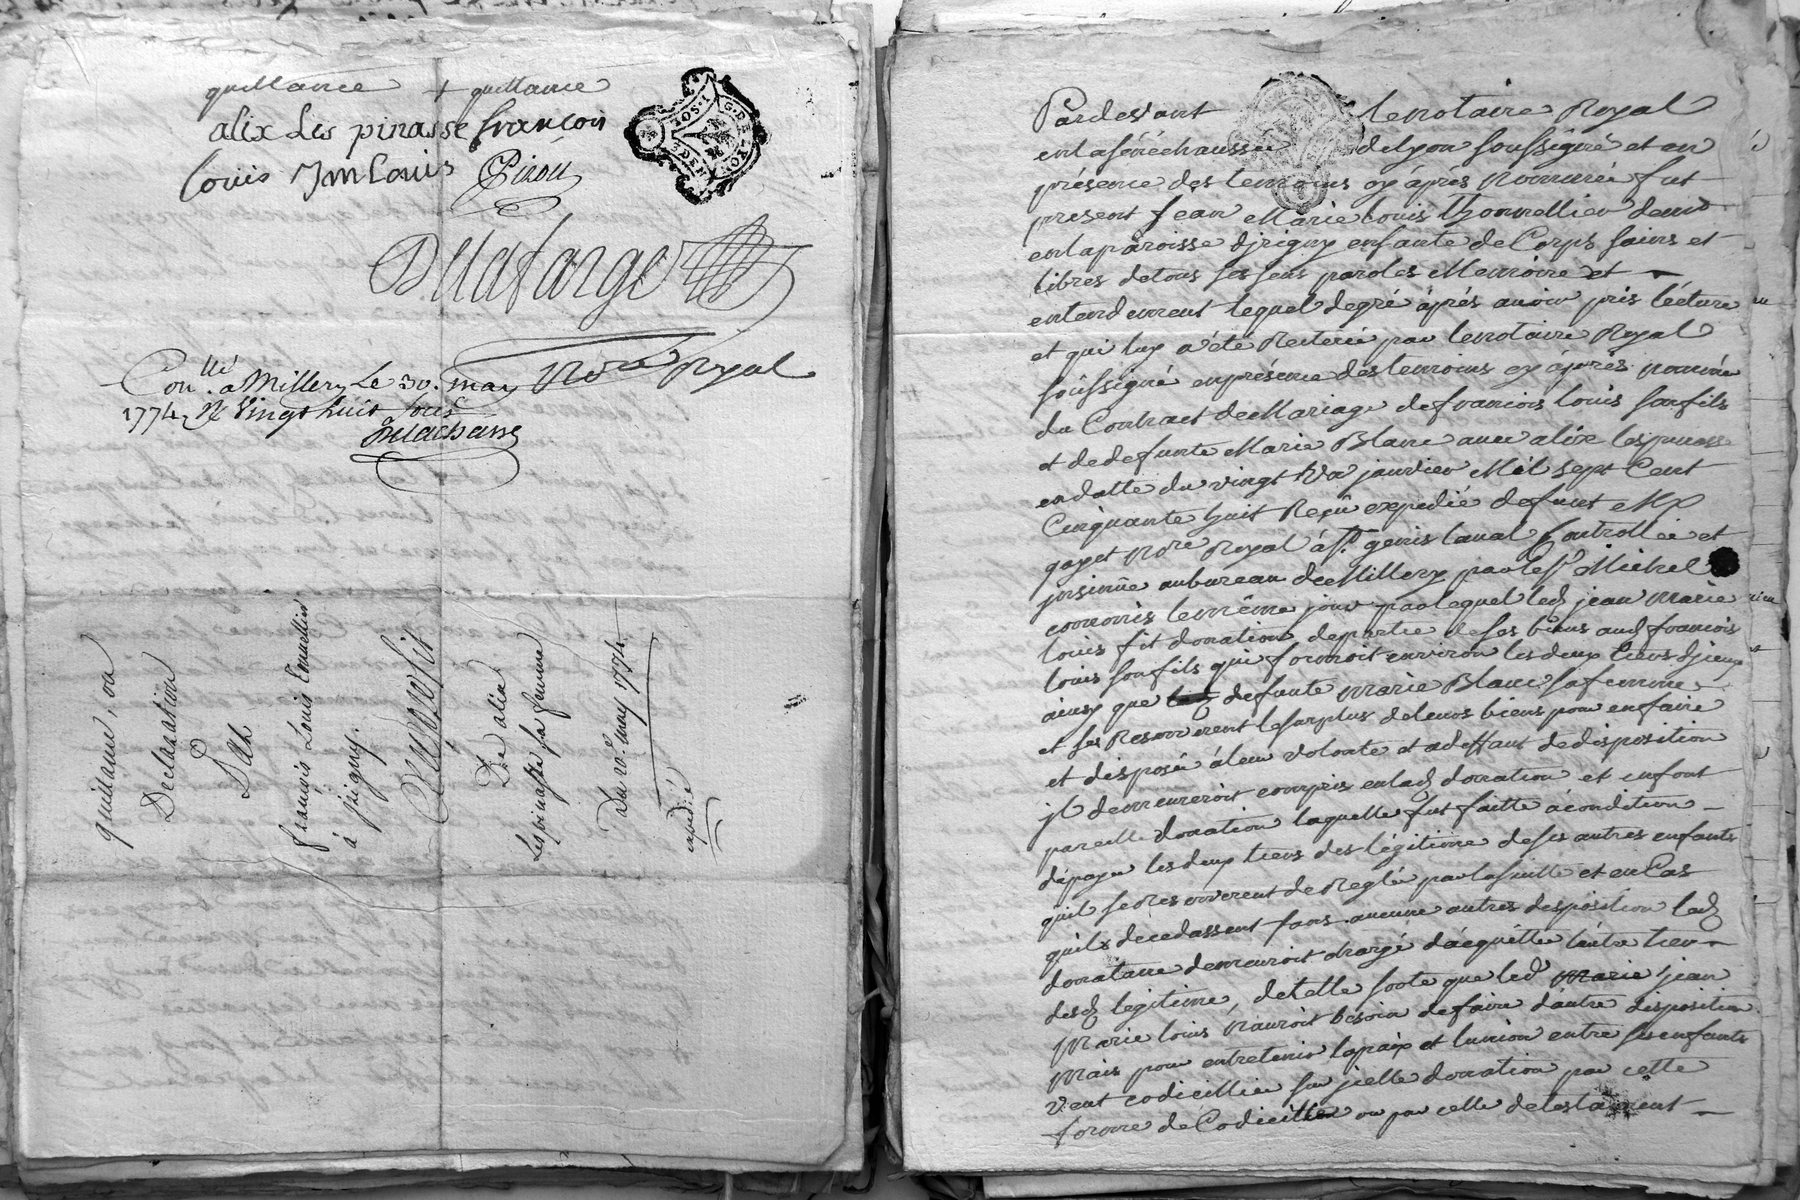 quittance + quittance
alix Les pinasse françoii
louis Jm Louis Piron
Delafarge
Nore Royal
Conllé a Millery Le 30. may
1774 Rt Vingt huit sous
Delachann
quittance, ou
Declaration
Par
françois Louis
à jrigny.
De alix
Lespinasse sa femme
Du 10e may 1774
expedié
Pardevant le notaire Royal
en la sénéchaussée de Lyon soussigné et en
présence des temoins cy après nommés fut
present jean Marie louis thonnellier demt
en la paroisse djrigny enfante de Corps sains et
libres de tous ses sens paroles Memoire et
entendement lequel de gré après avoir pris lécture
et qui luy a été Reiterée par le notaire Royal
soussigné en présence des temoins cy après nommé
du Contract de Mariage de francois louis son fils
et de defunte Marie Blanc avec alix lespinasse
en datte du vingt janvier Mil sept Cent
Cinquante huit Reçu expedié defunt Me
gayet Nore Royal à St genis laval Controllée et
jnsinüe au bureau de Millery par le Sr Michel
commis le même jour par lequel led jean Marie
louis fit donation de partie de ses biens aud francois
louis son fils qui formoit environ les deux tiers djceux
ainsy que defunte Marie Blanc sa femme
et se Reserverent le surplus de leurs biens pour en faire
et disposé à leur volonte et a deffaut de disposition
jl demeureroit compris en lad donation et en font
pareille donation laquelle fut faitte à condition
de payer les deux tiers des légitime de ses autres enfants
quil se reserverent de Reglé par la suitte et en Cas
quils decedassent sans aucune autres desposition led
donataire demeuroit chargé d'acquitté l'autre tier
desd legitime, de telle sorte que led Marie jean
Marie louis n'auroit besoin de faire d'autre disposition
Mais pour entretenir la paix et lunion entre ses enfants
veut codicillier sur jcelle donation par cette
forme de Codicille ou par celle de testament